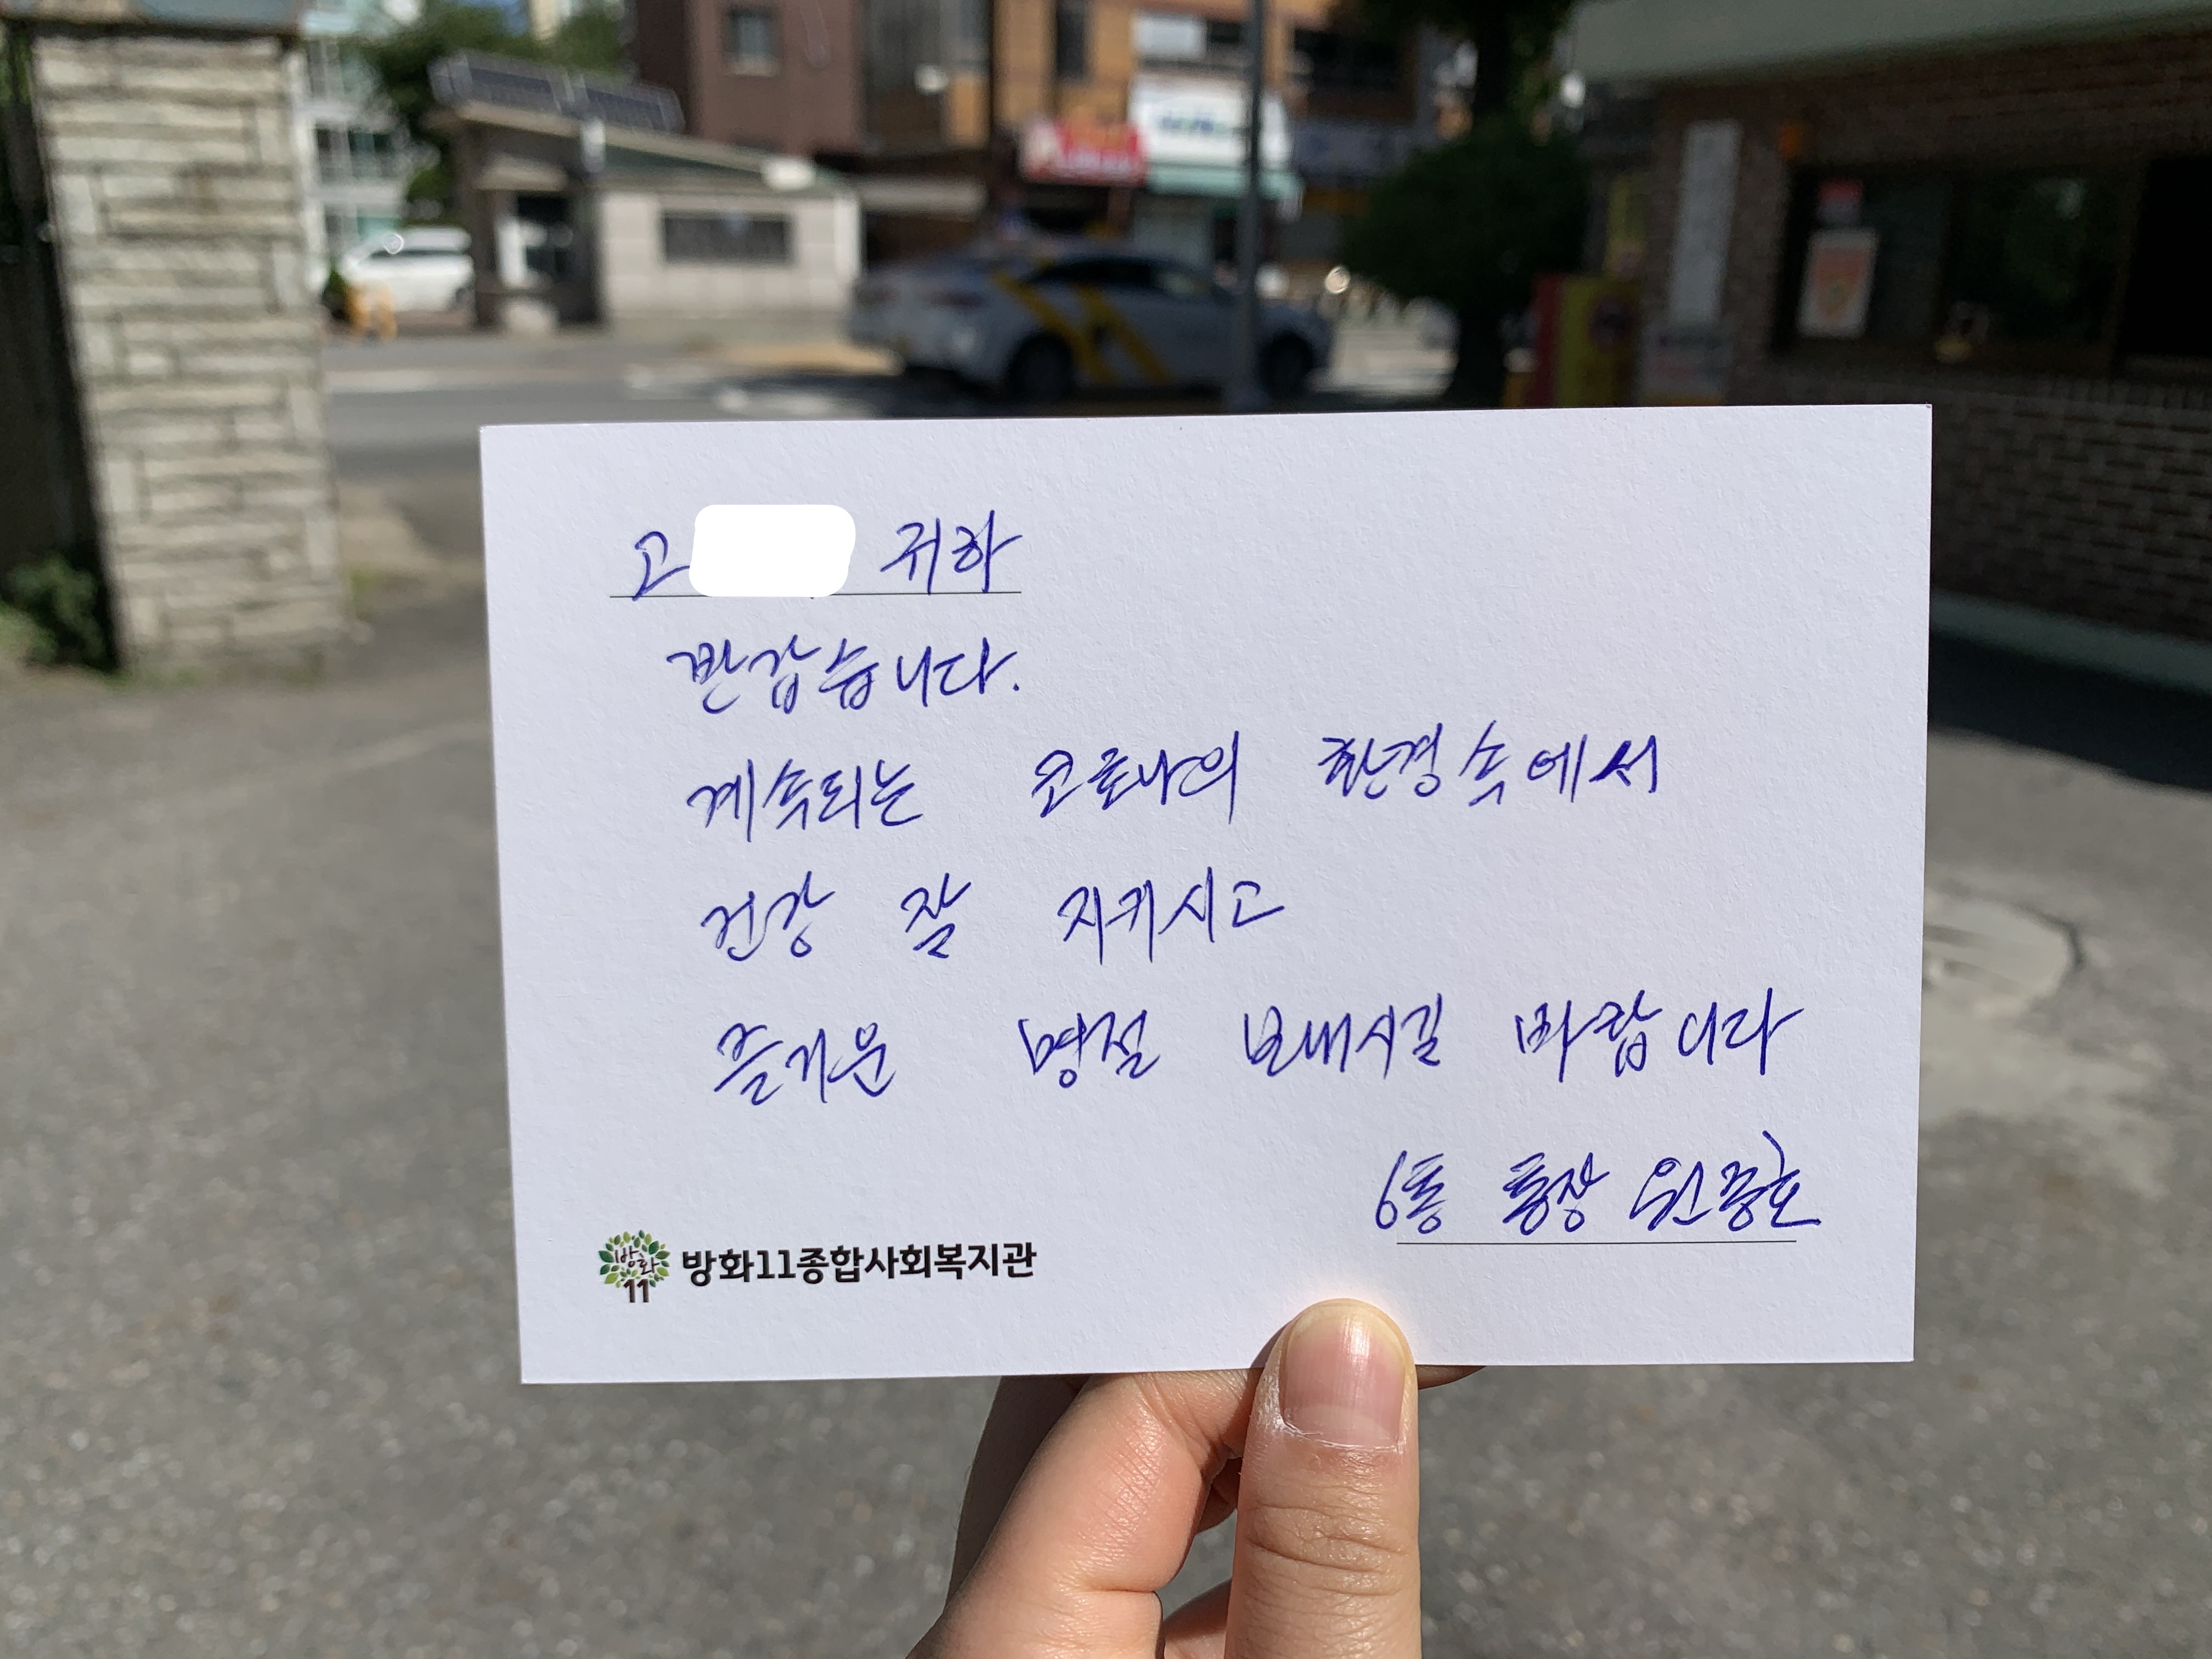 고 귀하
반갑습니다.
계속되는 코로나의 환경속에서
건강 잘 지키시고
즐거운 명절 보내시길 바랍니다
6통 통장 원종호
방화
11
방화11종합사회복지관